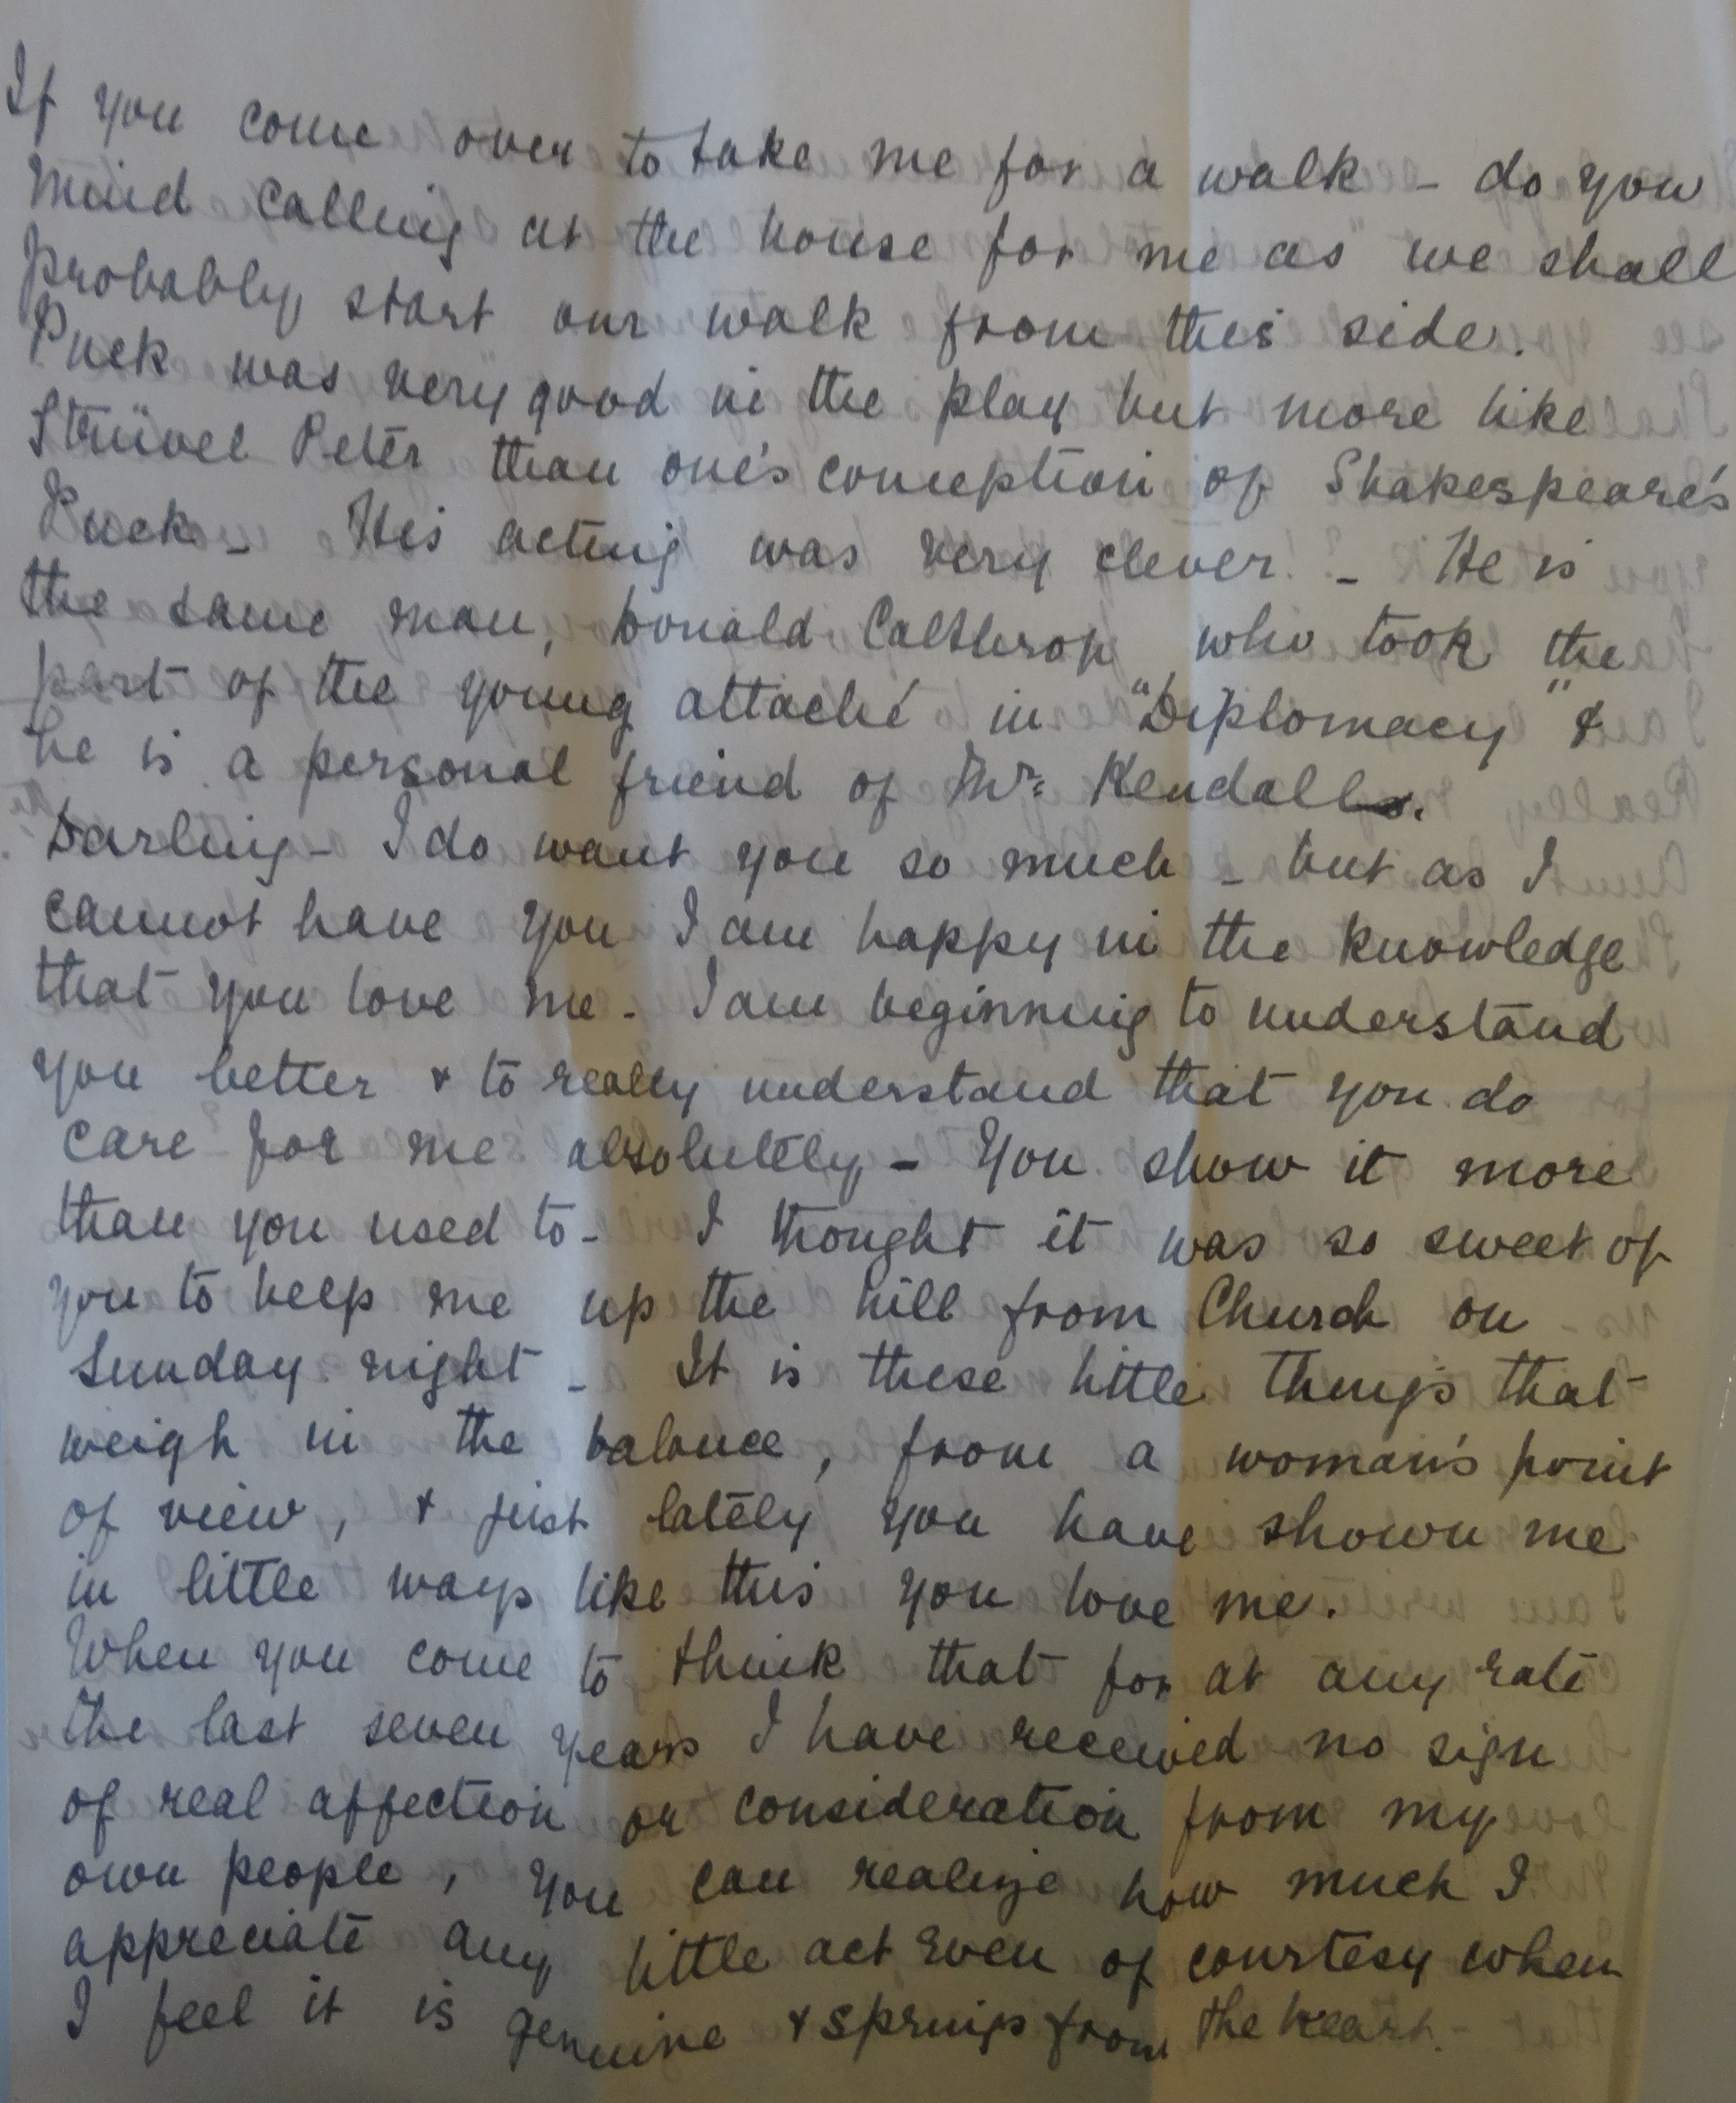 If you come over to take me for a walk - do you
mind calling at the house for me as we shall
probably start our walk from this side.
Puck was very good in the play but more like
Strüvel Peter than one's conception of Shakespeare's
Puck - His acting was very clever! - He is
the same man, Donald Calthrop who took the
part of the young attaché in "Diplomacy" &
he is a personal friend of Mr. Kendall.
Darling - I do want you so much - but as I
cannot have you I am happy in the knowledge
that you love me - I am beginning to understand
you better & to really understand that you do
care for me absolutely - You show it more
than you used to - I thought it was so sweet of
you to help me up the hill from Church on
Sunday night - It is these little things that
weigh in the balance, from a woman's point
of view, & just lately you have shown me
in little ways like this you love me.
When you come to think that for at any rate
the last seven years I have received no sign
of real affection or consideration from my
own people, you can realize how much I
appreciate any little act even of courtesy when
I feel it is genuine & springs from the heart. -